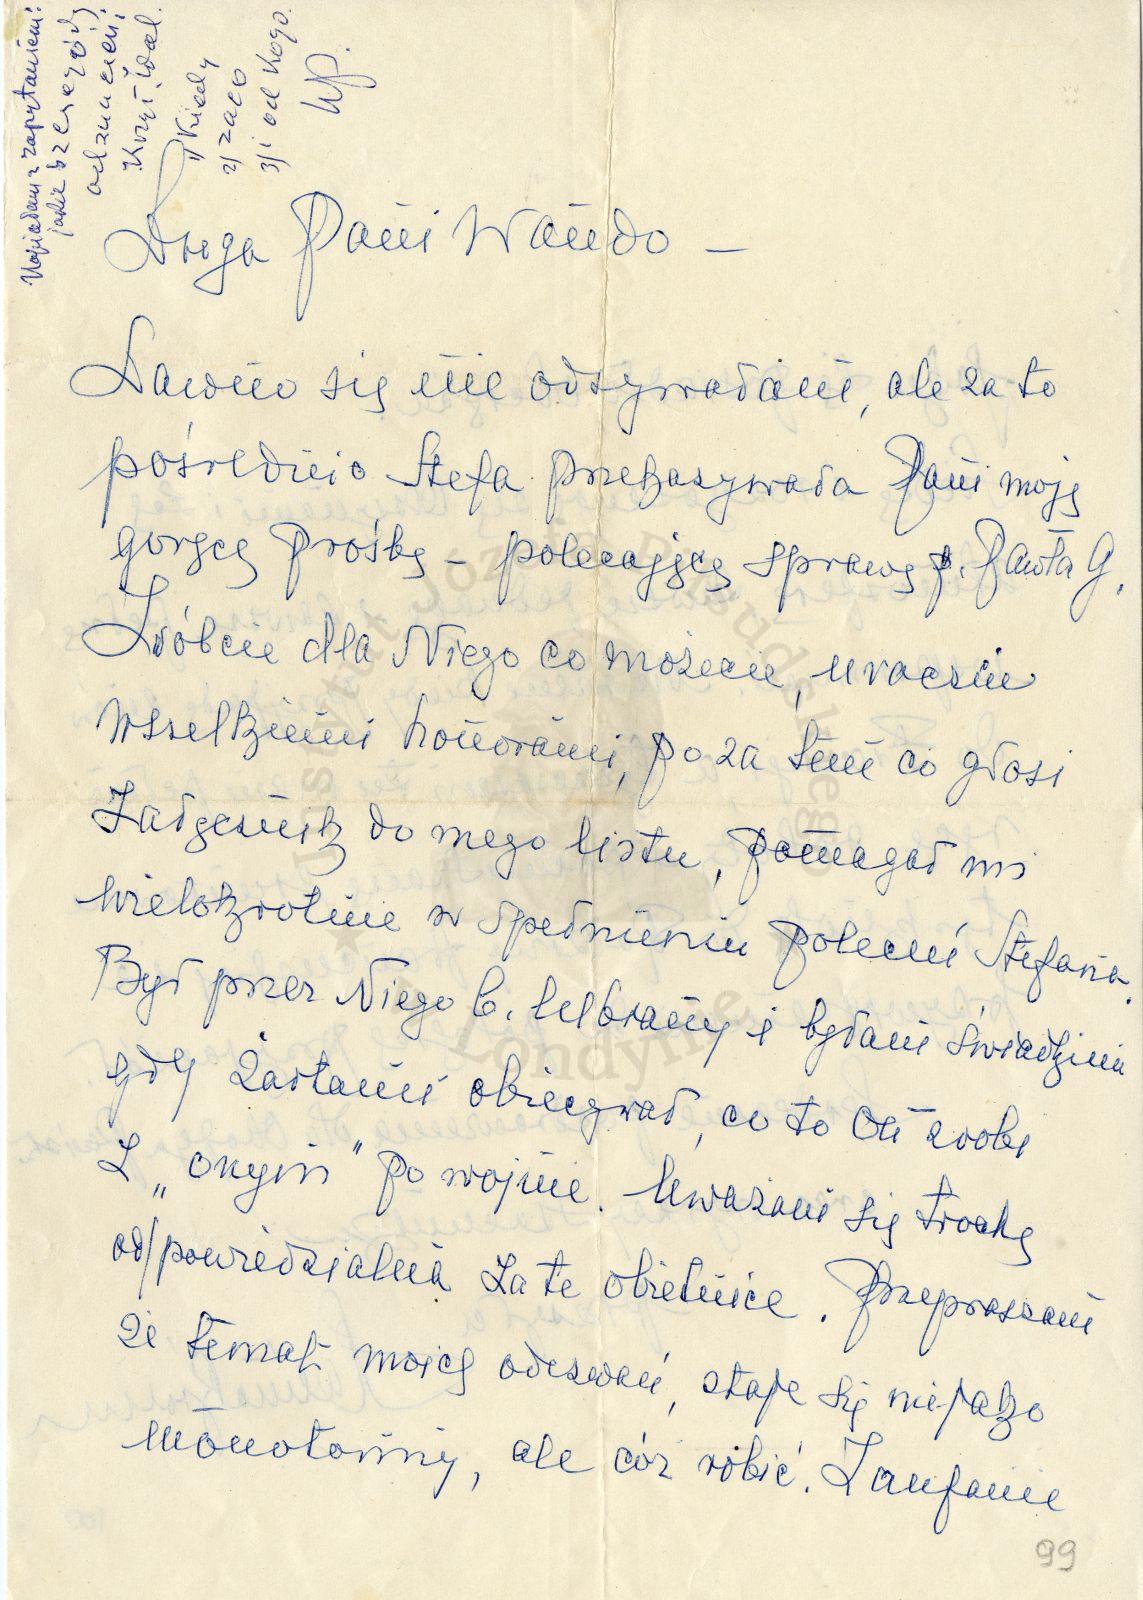 Napisałam z zapytaniem:
jakie szczegóły
odznaczeń,
Krzyż Wal.
1/ Kiedy
2/ za co
3/ i od Kogo.
WP.
Droga Pani Wando —
Dawno się nie odzywałam, ale za to
pośrednio Stefa przekazywała Pani moją
gorącą prośbę – polecającą sprawę p. Pawła G.
Zróbcie dla Niego co możecie, uraczcie
wszelkiemi honorami, poza tem co głosi
Załącznik do mego listu, pomagał mi
wielokrotnie w spełnieniu poleceń Stefana.
Był przez Niego b. lubiany i byłam świadkiem
gdy Żartami obiecywał, co to On zrobi
z „onym” po wojnie. Uważam się trochę
odpowiedzialną za te obietnice. Przepraszam
że temat moich odezwań, staje się niejako
monotonny, ale cóż robić. Zaufanie
99
Instytut Józefa Piłsudskiego
Londyn